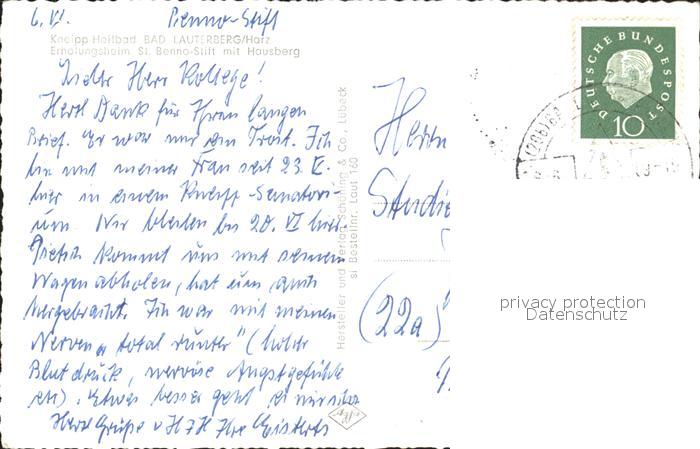 6. VI. Benno-Stift
Kneipp-Heilbad BAD LAUTERBERG/Harz
Erholungsheim St. Benno-Stift mit Hausberg
Lieber Herr Kollege!
Herzl. Dank für Ihren langen
Brief. Er war mir ein Trost. Ich
bin mit meiner Frau seit 23. V.
hier in einem Kneipp-Sanatori-
um. Wir bleiben bis 20. VI hier.
kommt uns mit seinem
Wagen abholen, hat uns auch
hergebracht. Ich war mit meinen
Nerven "total runter" (hoher
Blutdruck, nervöse Angstgefühle
etc). Etwas besser geht es mir schon
Herzl Grüße v. H z H Ihre
Hersteller und Verlag Schöning & Co., Lübeck
si Bestellnr. Laut 160
Herrn
Studie
(22a)
DEUTSCHE BUNDESPOST
10
privacy protection
Datenschutz